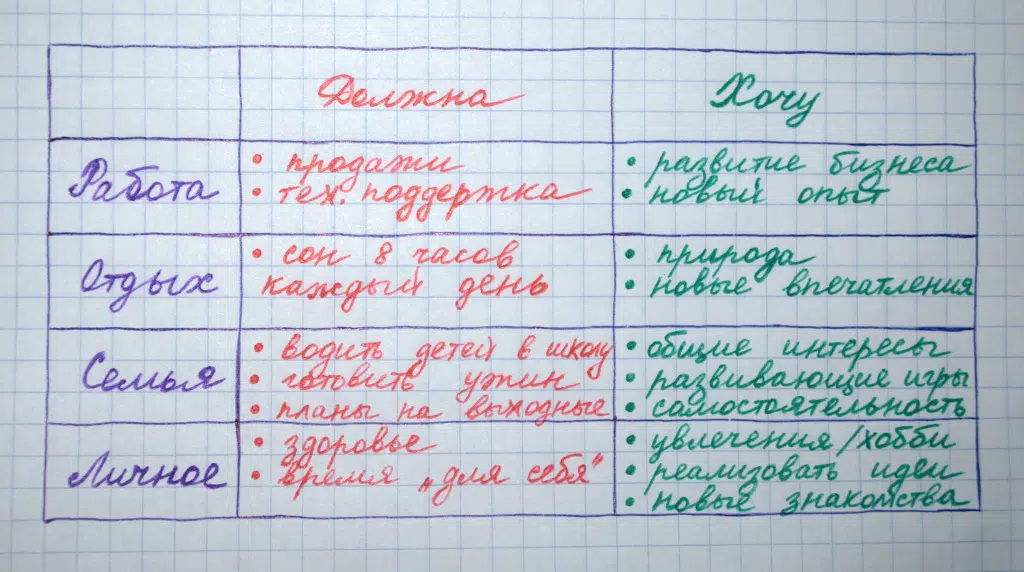 Должна
Хочу
Работа
• продажи
• тех. поддержка
• развитие бизнеса
• новый опыт
Отдых
• сон 8 часов
каждый день
• природа
• новые впечатления
Семья
• водить детей в школу
• готовить ужин
• планы на выходные
• общие интересы
• развивающие игры
• самостоятельность
Личное
• здоровье
• время „для себя“
• увлечения/хобби
• реализовать идеи
• новые знакомства